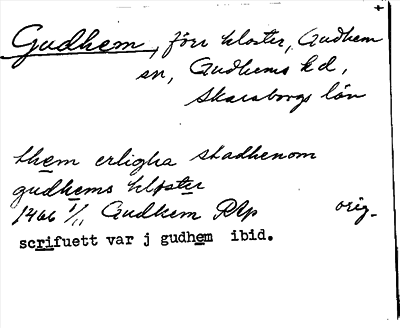 Gudhem, förr kloster, Gudhem
sn, Gudhems hd,
Skaraborgs län
them erligha stadhenom
gudhems kloster
1466 1/11 Gudhem RAp orig.
scrifuett var j gudhem ibid.